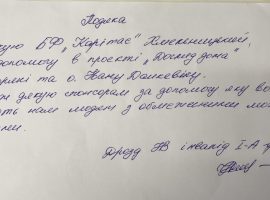 Подяка
кую БФ „Карітас" Хмельницький,
допомогу в проєкті „Догляд дома"
та о. Івану Данкевічу.
дякую спонсорам за допомогу яку
нам людям з обмеженими
Дрозд НВ інвалід І-А